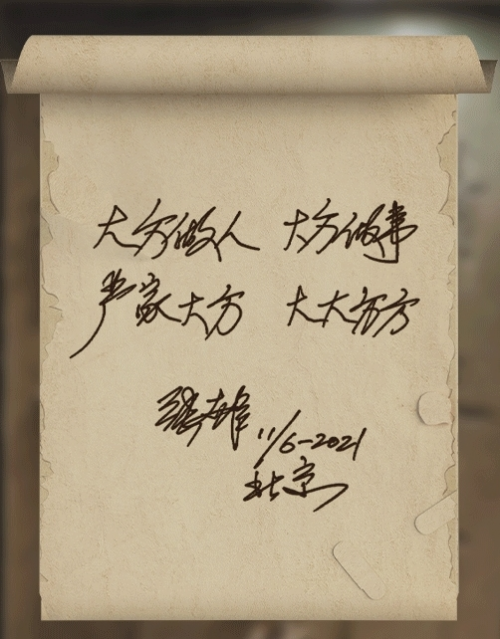 大方做人 大方做事
严家大方 大大方方
11/6-2021
北京